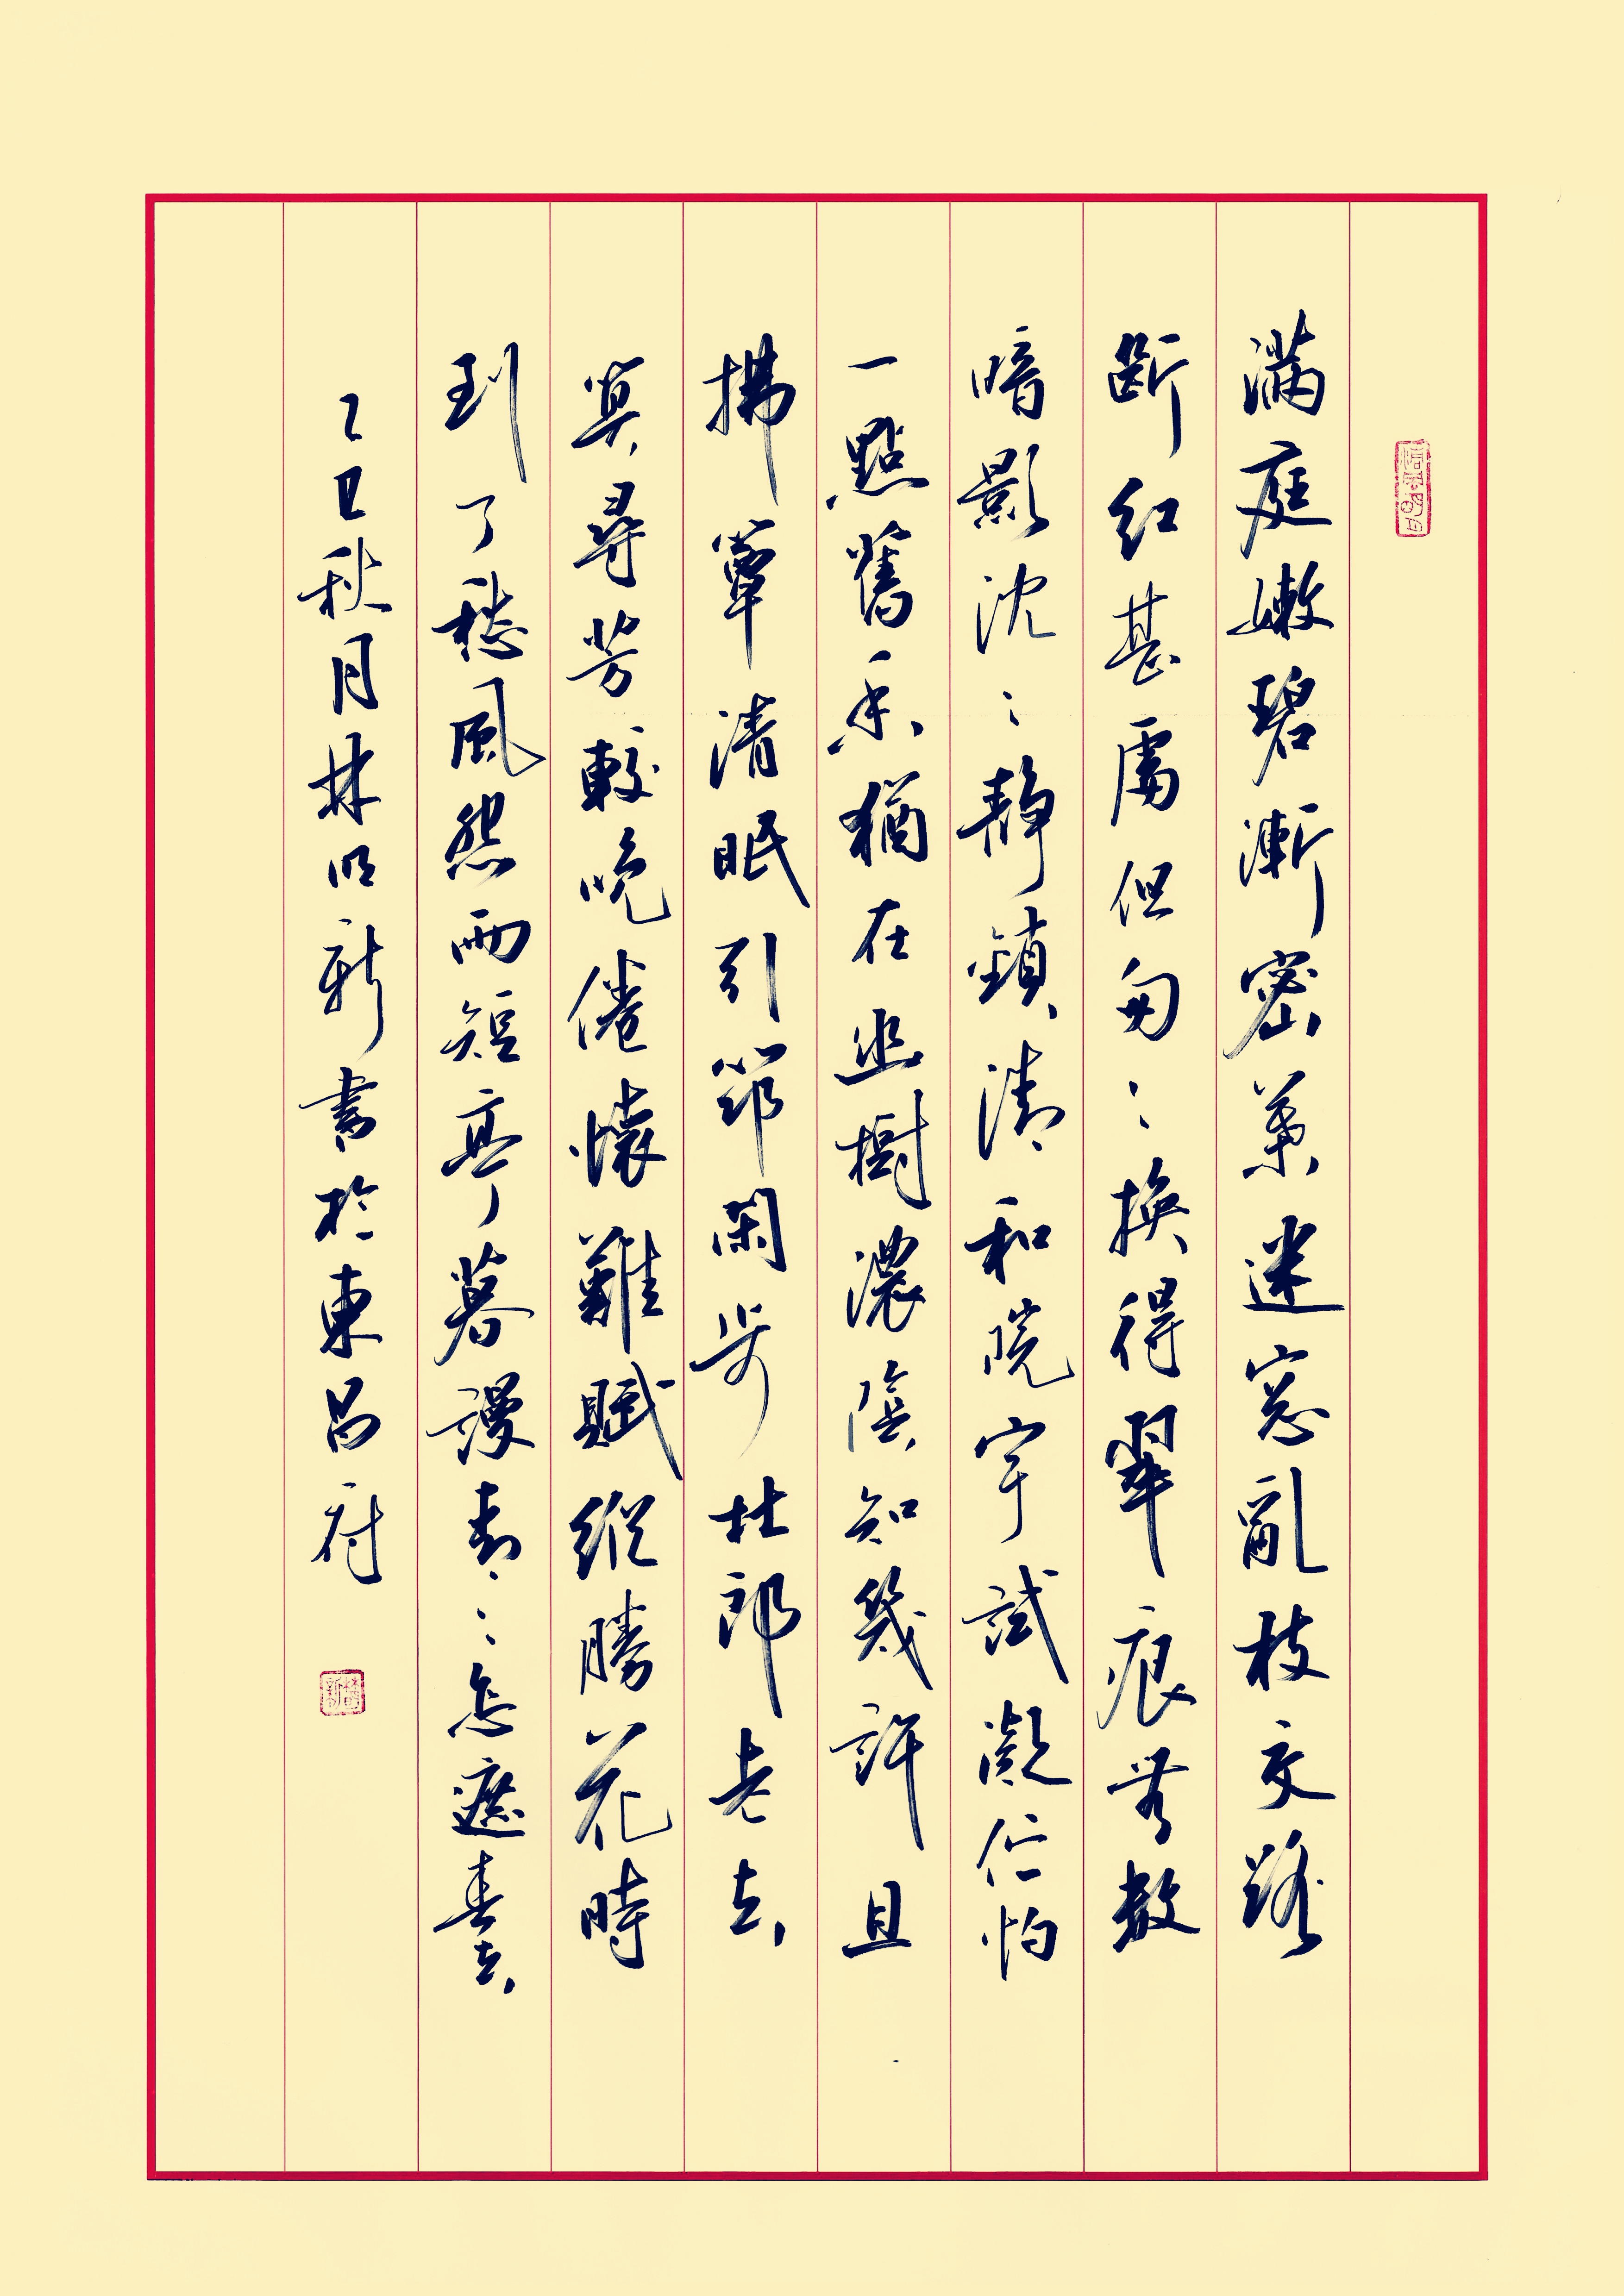 滿庭嫩碧漸密葉迷窓亂枝交路
斷紅甚處但匆〻換得翠痕無數
暗影沈〻靜鎖清和院宇試凝佇怕
一點舊香猶在幽樹濃陰知幾許且
拂簟清眠引筇閑步杜郎老去
算尋芳較晚倦懷難賦縱勝花時
到了愁風怨雨短亭暮謾青〻怎遮春去
乙巳秋月林明新書於東昌府